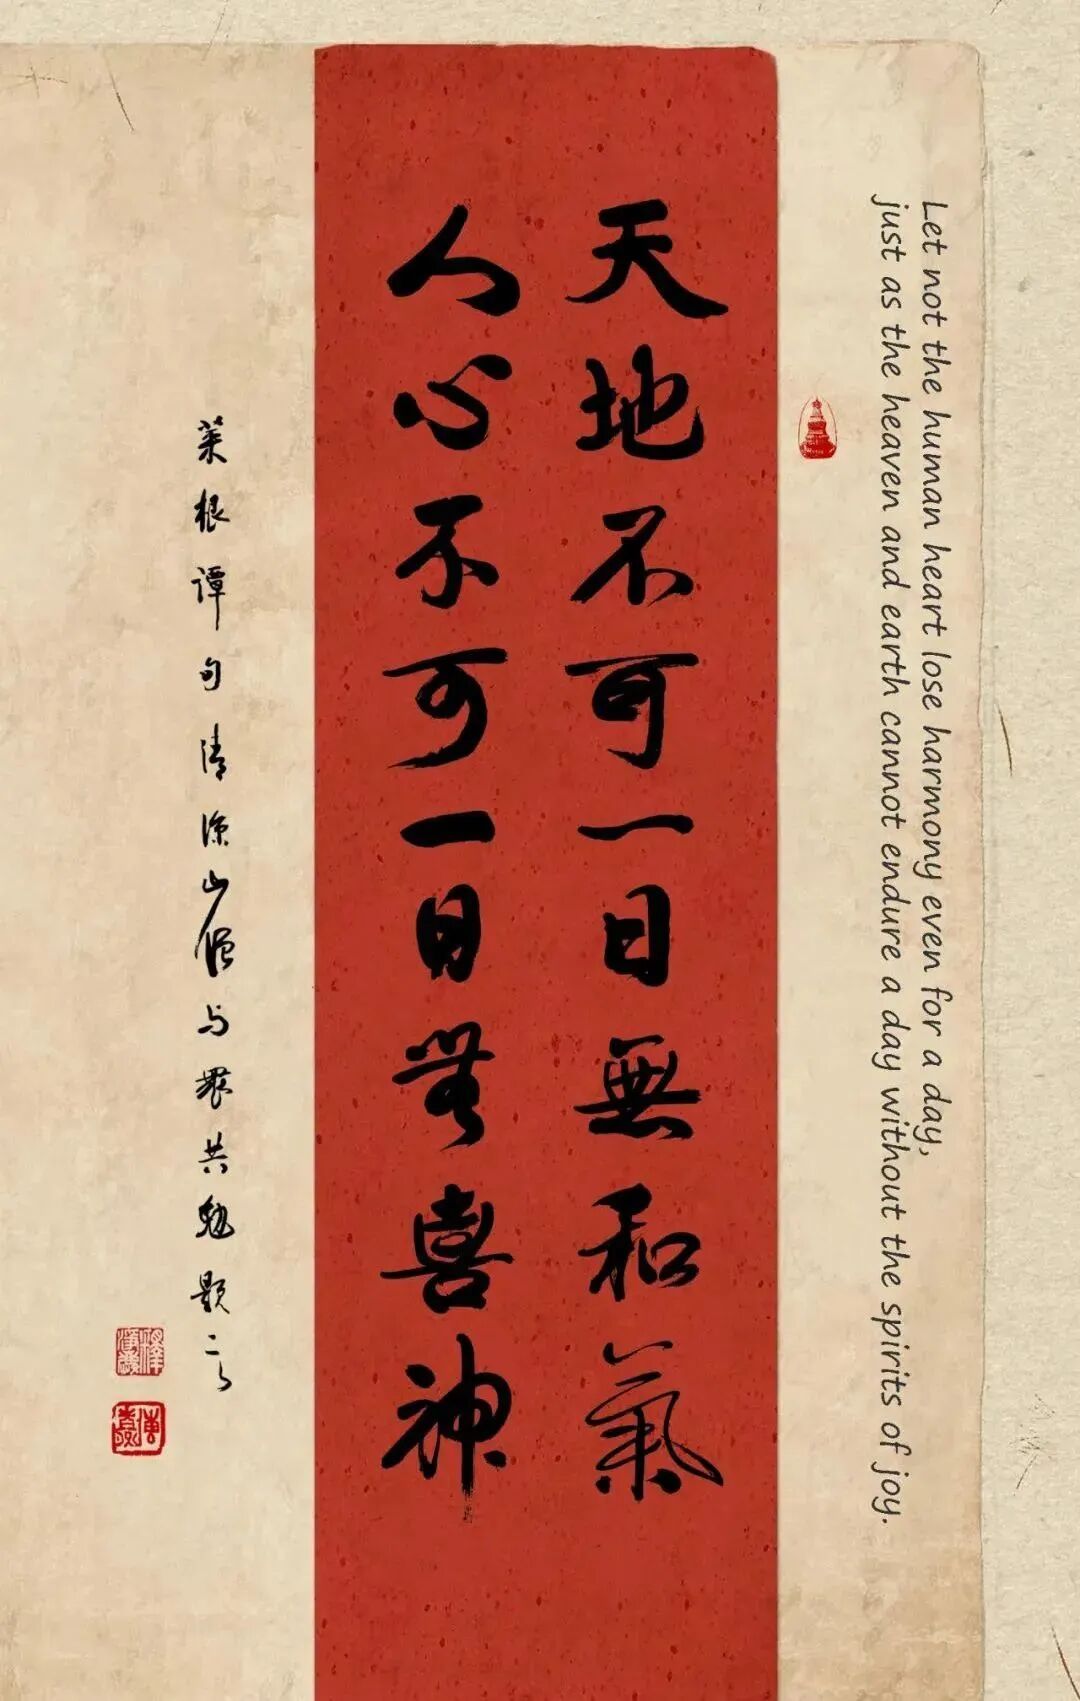 Let not the human heart lose harmony even for a day,
just as the heaven and earth cannot endure a day without the spirits of joy.
天地不可一日無和氣
人心不可一日無喜神
菜根谭句清凉山
与眾共勉題之